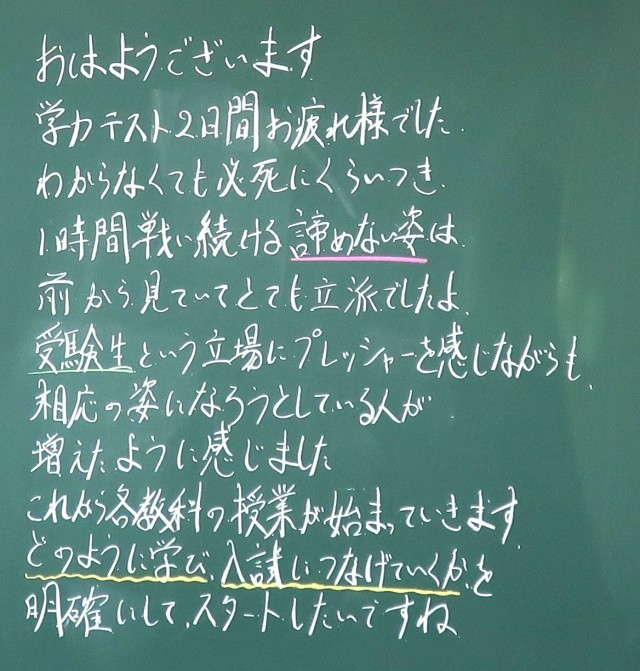 おはようございます
学力テスト2日間お疲れ様でした.
わからなくても必死にくらいつき.
1時間戦い続ける諦めない姿は.
前から見ていてとても立派でしたよ.
受験生という立場にプレッシャーを感じながらも.
相応の姿になろうとしている人が.
増えたように感じました
これから各教科の授業が始まっていきます.
どのように学び.入試につなげていくか.を
明確にして.スタートしたいですね.